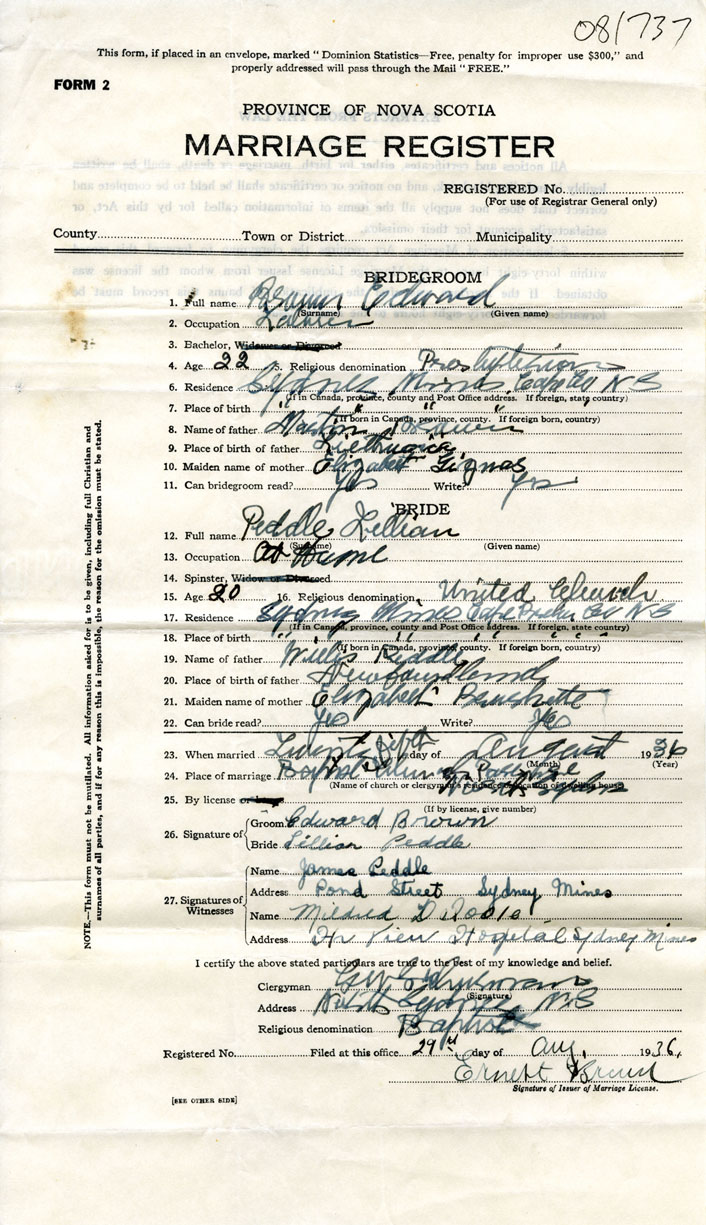 081737
This form, if placed in an envelope, marked "Dominion Statistics—Free, penalty for improper use $300," and
properly addressed will pass through the Mail "FREE."
FORM 2
PROVINCE OF NOVA SCOTIA
MARRIAGE REGISTER
REGISTERED No.
(For use of Registrar General only)
County Town or District Municipality
BRIDEGROOM
1. Full name Brown Edward
(Surname) (Given name)
2. Occupation Labourer
3. Bachelor, Widower or Divorced
4. Age 22 5. Religious denomination Presbyterian
6. Residence Sydney Mines Cape Bre NS
(If in Canada, province, county and Post Office address. If foreign, state country)
7. Place of birth " " " "
(If born in Canada, province, county. If foreign born, country)
8. Name of father Brown
9. Place of father Lithuania
10. Maiden name of mother Elizabeth
11. Can bridegroom read? Yes Write? Yes
BRIDE
12. Full name Peddle Lillian
(Surname) (Given name)
13. Occupation At Home
14. Spinster, Widow or Divorced
15. Age 20 16. Religious denomination United Church
17. Residence Sydney Mines Cape Breton Co NS
(If in Canada, province, county and Post Office address. If foreign, state country)
18. Place of birth " " " "
(If born in Canada, province, county. If foreign born, country)
19. Name of father Willis Peddle
20. Place of father Newfoundland
21. Maiden name of mother Elizabeth
22. Can bride read? Yes Write? Yes
23. When married Twenty fifth day of August 1936
(Month) (Year)
24. Place of marriage Baptist North Sydney
(Name of church or clergyman's residence, location of dwelling house)
25. By license or
(If by license, give number)
26. Signature of Groom Edward Brown
Bride Lillian Peddle
27. Signatures of Witnesses
Name James Peddle
Address Pond Street Sydney Mines
Name Mildred
Address Hr View Hospital Sydney Mines
I certify the above stated particulars are true to the best of my knowledge and belief.
Clergyman
(Signature)
Address North Sydney, N.S
Religious denomination Baptist
Registered No. Filed at this office 29th day of Aug. 1936,
Ernest
Signature of Issuer of Marriage License.
[SEE OTHER SIDE]
NOTE.—This form must not be mutilated. All information asked for is to be given, including full Christian and
surnames of all parties, and if for any reason this is impossible, the reason for the omission must be stated.